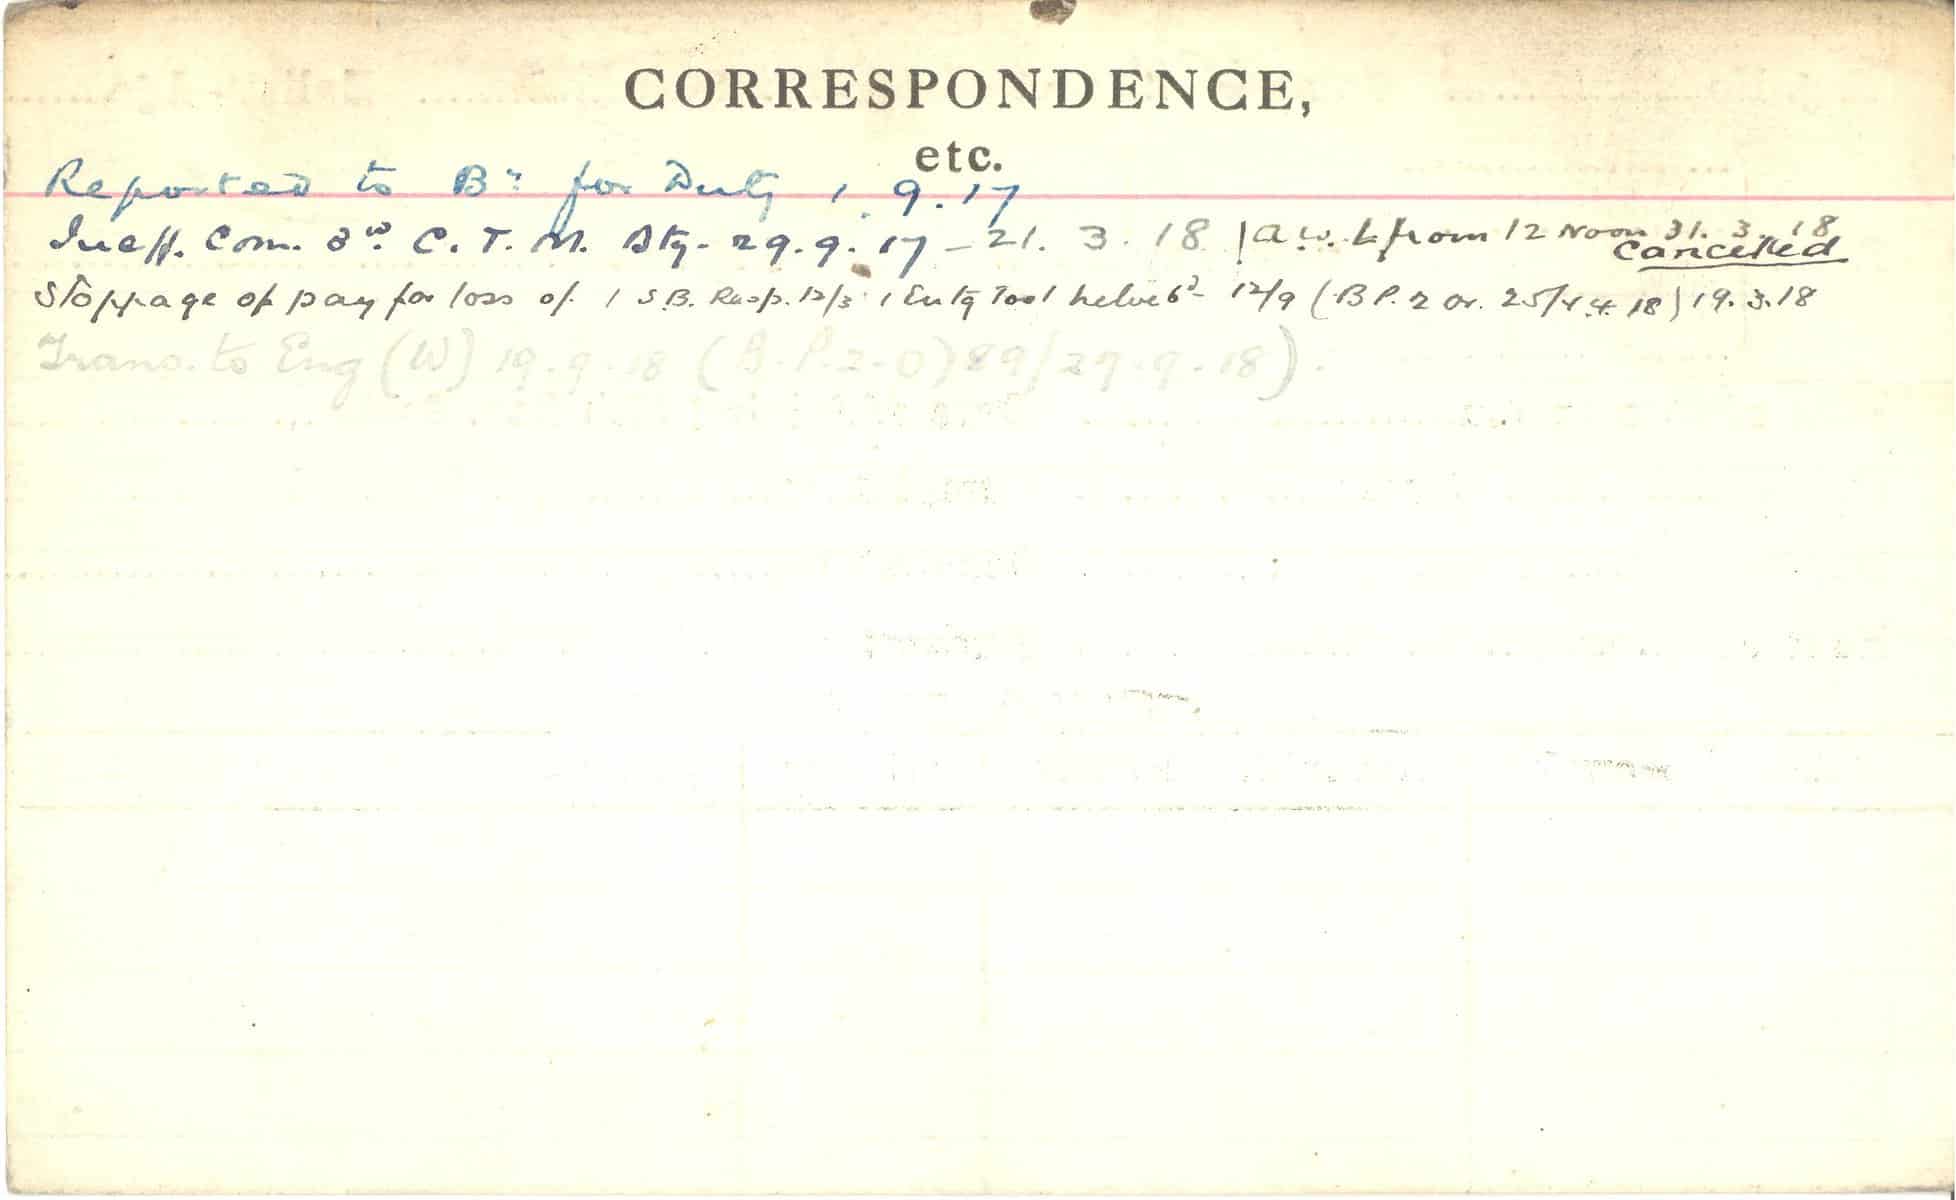 CORRESPONDENCE,
etc.
Reported to Bn for Duty 1.9.17
Ineff. Com. 3rd C.T.M. Bty - 29.9.17 - 21.3.18 | A.W.L from 12 Noon 31.3.18
Cancelled
Stoppage of pay for loss of 1 S.B. Resp. 12/3 1 Entg Tool helve 6d - 12/9 (B P. 2 Or. 25/4.4.18) 19.3.18
Trans. to Eng (W) 19.9.18 (B.P.2-O) 89/27.9.18).